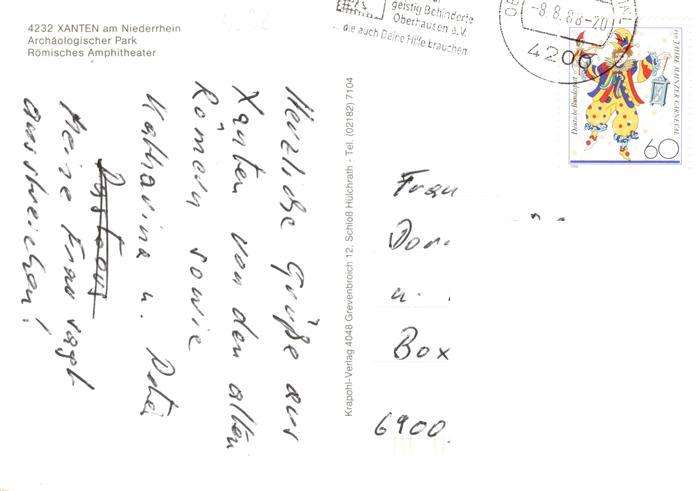 4232 XANTEN am Niederrhein
Archäologischer Park
Römisches Amphitheater
geistig Behinderte
Oberhausen e.V.
die auch Deine Hilfe brauchen
-8.8.88-20
4200
Deutsche Bundespost
150 JAHRE MAINZER CARNEVAL
60
Herzliche Grüße aus
Xanten von den alten
Römern sowie
Katharina u. Peter
Meine Frau sagt
ausstreichen!
Krapohl-Verlag 4048 Grevenbroich 12, Schloß Hülchrath - Tel. (02182) 7104
Frau
u.
Box
6900